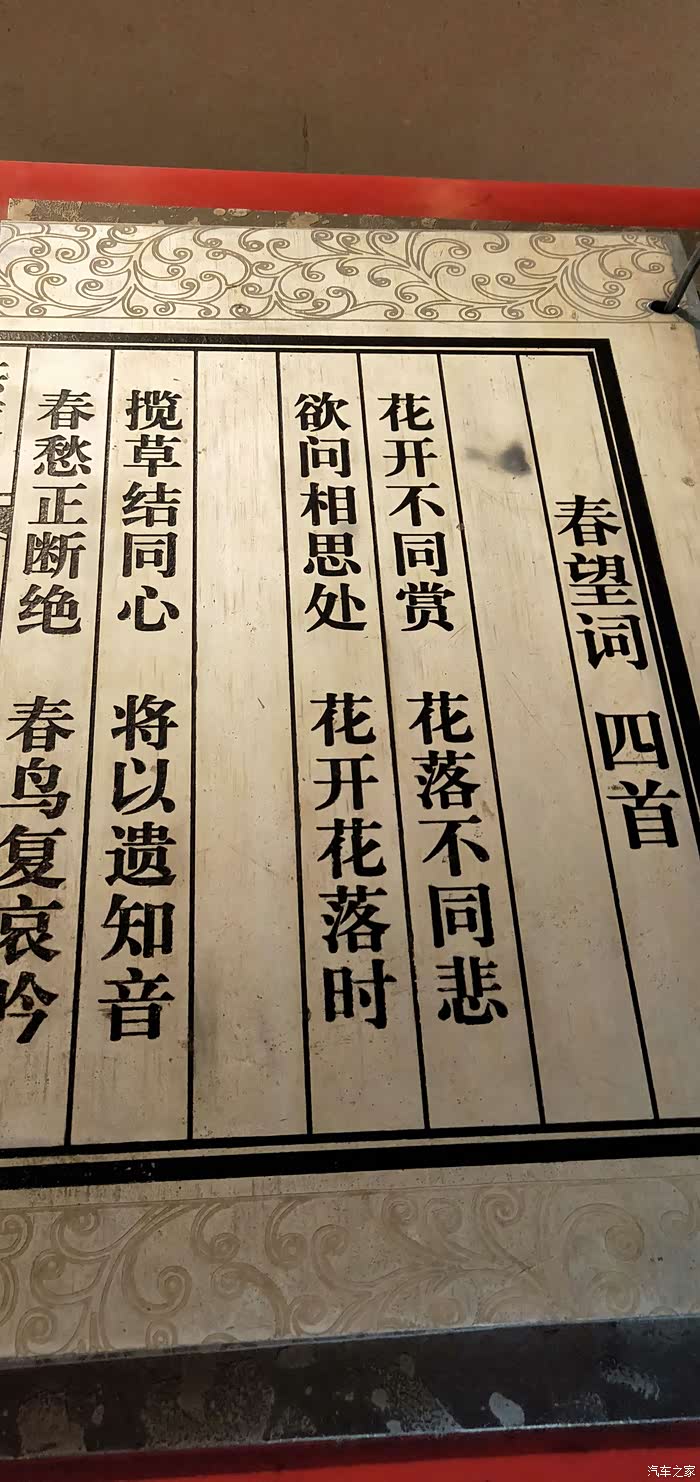 春望词 四首
花开不同赏 花落不同悲
欲问相思处 花开花落时
揽草结同心 将以遗知音
春愁正断绝 春鸟复哀吟
汽车之家